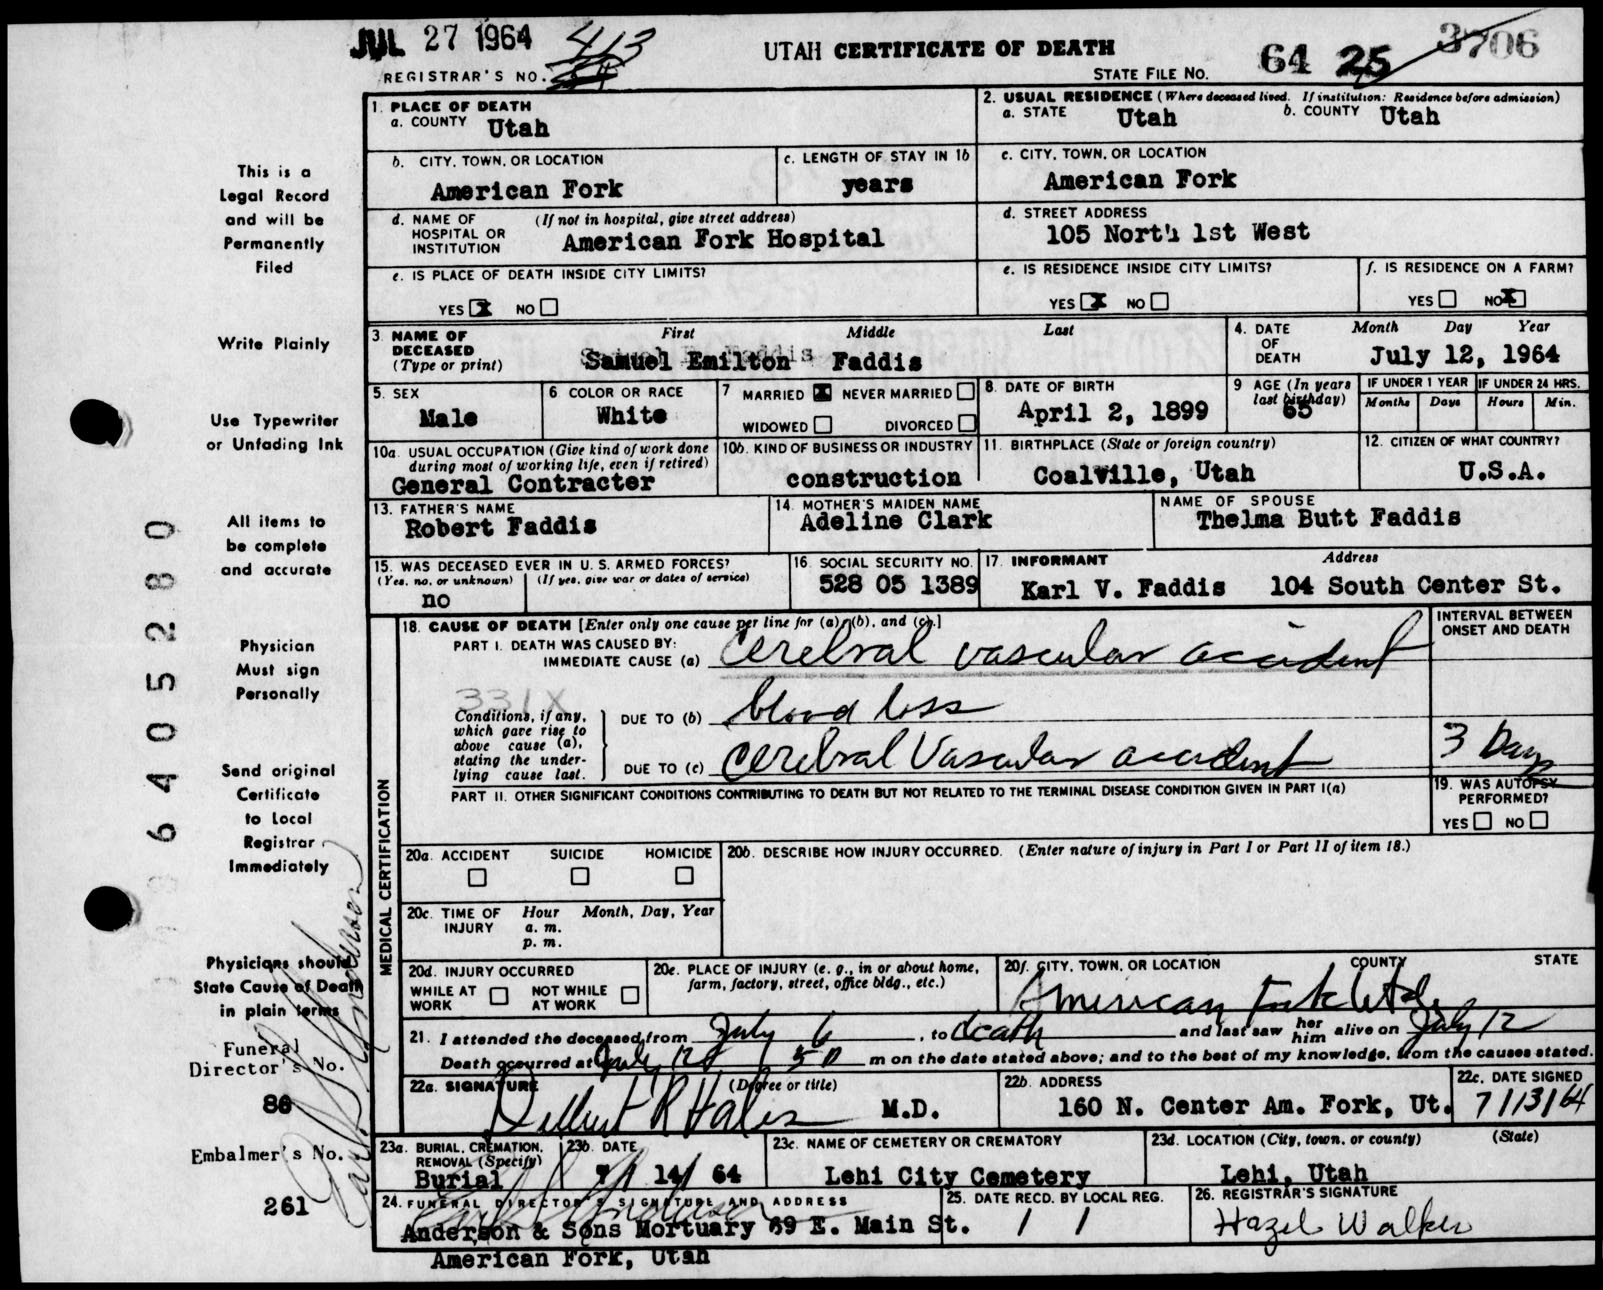 JUL 27 1964 413
UTAH CERTIFICATE OF DEATH
REGISTRAR'S NO.
STATE FILE NO. 64 25 3706
This is a
Legal Record
and will be
Permanently
Filed
Write Plainly
Use Typewriter
or Unfading Ink
All items to
be complete
and accurate
Physician
Must sign
Personally
Send original
Certificate
to Local
Registrar
Immediately
Physicians should
State Cause of Death
in plain terms
Funeral
Director's No.
86
Embalmer's No.
261
6405280
1. PLACE OF DEATH
a. COUNTY Utah
2. USUAL RESIDENCE (Where deceased lived. If institution: Residence before admission)
a. STATE Utah b. COUNTY Utah
b. CITY, TOWN, OR LOCATION American Fork
c. LENGTH OF STAY IN 1b years
c. CITY, TOWN, OR LOCATION American Fork
d. NAME OF HOSPITAL OR INSTITUTION (If not in hospital, give street address) American Fork Hospital
d. STREET ADDRESS 105 North 1st West
e. IS PLACE OF DEATH INSIDE CITY LIMITS?
YES X NO
e. IS RESIDENCE INSIDE CITY LIMITS?
YES X NO
f. IS RESIDENCE ON A FARM?
YES NO X
3 NAME OF DECEASED (Type or print) First Middle Last
Samuel Emilton Faddis
4. DATE OF DEATH Month Day Year
July 12, 1964
5. SEX Male
6 COLOR OR RACE White
7 MARRIED X NEVER MARRIED
WIDOWED DIVORCED
8. DATE OF BIRTH April 2, 1899
9 AGE (In years last birthday) 65
IF UNDER 1 YEAR Months Days
IF UNDER 24 HRS. Hours Min.
10a. USUAL OCCUPATION (Give kind of work done during most of working life, even if retired)
General Contracter
10b. KIND OF BUSINESS OR INDUSTRY construction
11. BIRTHPLACE (State or foreign country) Coalville, Utah
12. CITIZEN OF WHAT COUNTRY? U.S.A.
13. FATHER'S NAME Robert Faddis
14. MOTHER'S MAIDEN NAME Adeline Clark
NAME OF SPOUSE Thelma Butt Faddis
15. WAS DECEASED EVER IN U. S. ARMED FORCES?
(Yes, no, or unknown) (If yes, give war or dates of service)
no
16. SOCIAL SECURITY NO. 528 05 1389
17. INFORMANT Address
Karl V. Faddis 104 South Center St.
MEDICAL CERTIFICATION
18. CAUSE OF DEATH [Enter only one cause per line for (a), (b), and (c).]
PART I. DEATH WAS CAUSED BY:
IMMEDIATE CAUSE (a) Cerebral vascular accident
INTERVAL BETWEEN ONSET AND DEATH
331X
Conditions, if any, which gave rise to above cause (a), stating the underlying cause last.
DUE TO (b) blood loss
DUE TO (c) Cerebral Vascular accident 3 Days
PART II. OTHER SIGNIFICANT CONDITIONS CONTRIBUTING TO DEATH BUT NOT RELATED TO THE TERMINAL DISEASE CONDITION GIVEN IN PART I(a)
19. WAS AUTOPSY PERFORMED?
YES NO
20a. ACCIDENT SUICIDE HOMICIDE
20b. DESCRIBE HOW INJURY OCCURRED. (Enter nature of injury in Part I or Part II of item 18.)
20c. TIME OF INJURY Hour Month, Day, Year
a. m.
p. m.
20d. INJURY OCCURRED
WHILE AT WORK NOT WHILE AT WORK
20e. PLACE OF INJURY (e. g., in or about home, farm, factory, street, office bldg., etc.)
20f. CITY, TOWN, OR LOCATION COUNTY STATE
American Fork Utah
21. I attended the deceased from July 6, to death and last saw her him alive on July 12
Death occurred at July 12 5 m on the date stated above; and to the best of my knowledge, from the causes stated.
22a. SIGNATURE (Degree or title)
Delbert R Hales M.D.
22b. ADDRESS 160 N. Center Am. Fork, Ut.
22c. DATE SIGNED 7/13/64
23a. BURIAL, CREMATION, REMOVAL (Specify) Burial
23b. DATE 7/ 14/ 64
23c. NAME OF CEMETERY OR CREMATORY Lehi City Cemetery
23d. LOCATION (City, town, or county) (State)
Lehi, Utah
24. FUNERAL DIRECTOR'S SIGNATURE AND ADDRESS
Anderson & Sons Mortuary 69 E. Main St.
American Fork, Utah
25. DATE RECD. BY LOCAL REG.
/ /
26. REGISTRAR'S SIGNATURE
Hazel Walker